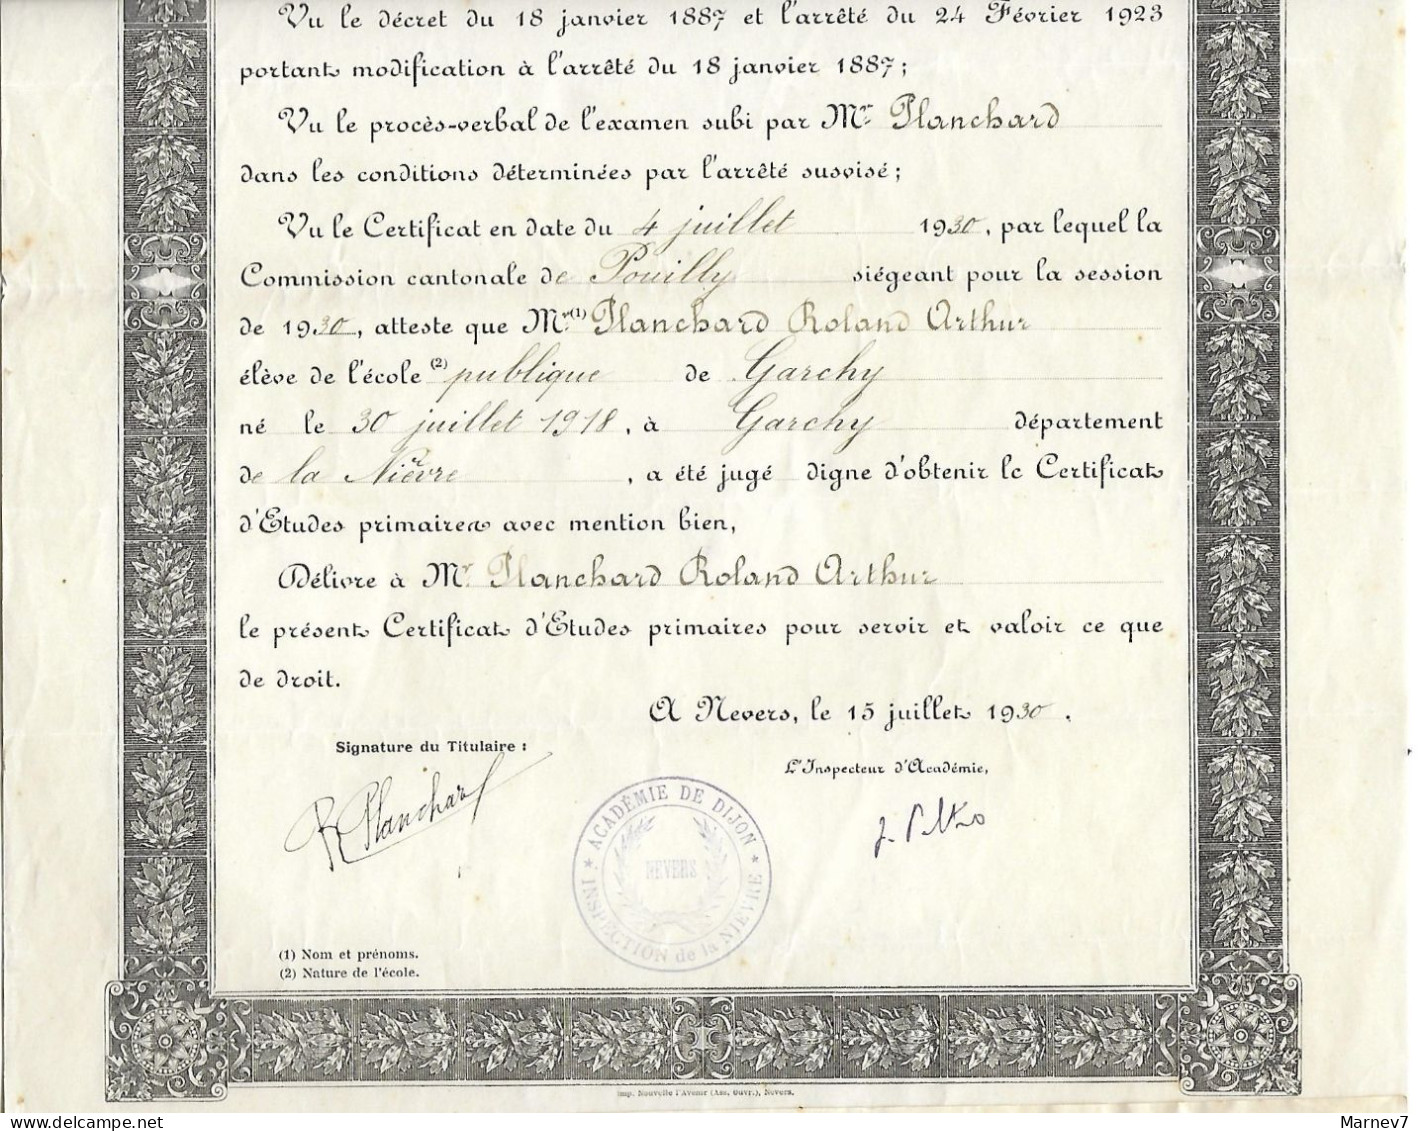 Vu le décret du 18 janvier 1887 et l'arrêté du 24 Février 1923
portant modification à l'arrêté du 18 janvier 1887;
Vu le procès-verbal de l'examen subi par Mr Planchard
dans les conditions déterminées par l'arrêté susvisé;
Vu le Certificat en date du 4 juillet 1930, par lequel la
Commission cantonale de Pouilly siégeant pour la session
de 1930, atteste que Mr (1) Planchard Roland Arthur
élève de l'école (2) publique de Garchy
né le 30 juillet 1918, à Garchy département
de la Nièvre, a été jugé digne d'obtenir le Certificat
d'Etudes primaires avec mention bien,
Délivre à Mr Planchard Roland Arthur
le présent Certificat d'Etudes primaires pour servir et valoir ce que
de droit.
A Nevers, le 15 juillet 1930.
Signature du Titulaire :
L'Inspecteur d'Académie,
R Planchard
* ACADÉMIE DE DIJON *
NEVERS
INSPECTION de la NIEVRE
(1) Nom et prénoms.
(2) Nature de l'école.
Imp. Nouvelle l'Avenir (Ass. Ouvr.), Nevers.
Marnev7